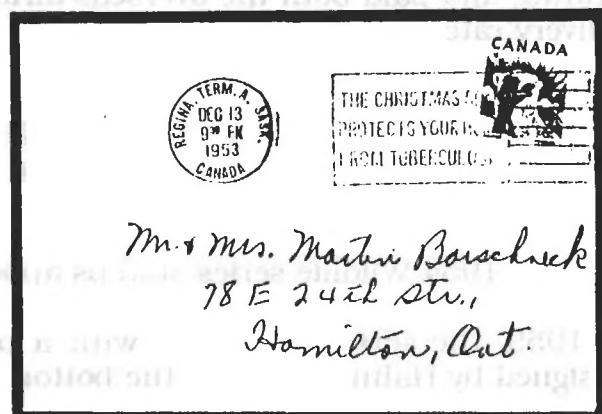 CANADA
REGINA, TERM. A. SASK.
DEC 13
9³⁰ PM
1953
CANADA
THE CHRISTMAS
PROTECTS YOUR
FROM TUBERCULOSIS
Mr. & Mrs. Martin Borschneck
78 E 24th Str.,
Hamilton, Ont.